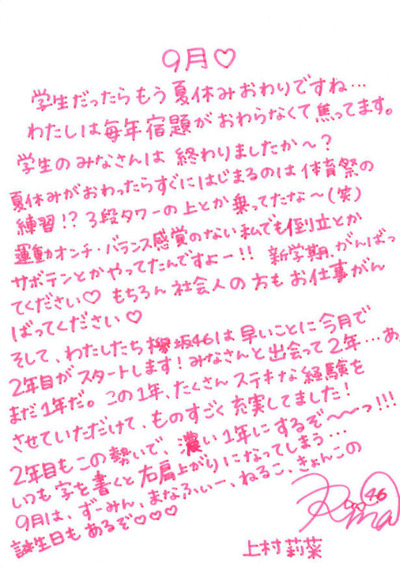 9月♡
学生だったらもう夏休みおわりですね…
わたしは毎年宿題がおわらなくて焦ってます。
学生のみなさんは終わりましたか〜?
夏休みがおわったらすぐにはじまるのは体育祭の
練習!?3段タワーの上とか乗ってたな〜(笑)
運動オンチ・バランス感覚のない私でも倒立とか
サボテンとかやってたんですよー!!新学期、がんばっ
てください♡もちろん社会人の方もお仕事がん
ばってください♡
そして、わたしたち欅坂46は早いことに今月で
2年目がスタートします!みなさんと出会って2年…あ
まだ1年だ。この1年、たくさんステキな経験を
させていただけて、ものすごく充実してました!
2年目もこの勢いで、濃い1年にするぞ〜〜っ!!!
いつも字を書くと右肩上がりになってしまう…
9月は、ずーみん、まなふぃー、ねるこ、きょんこの
誕生日もあるぞ♡♡♡
46
上村莉菜